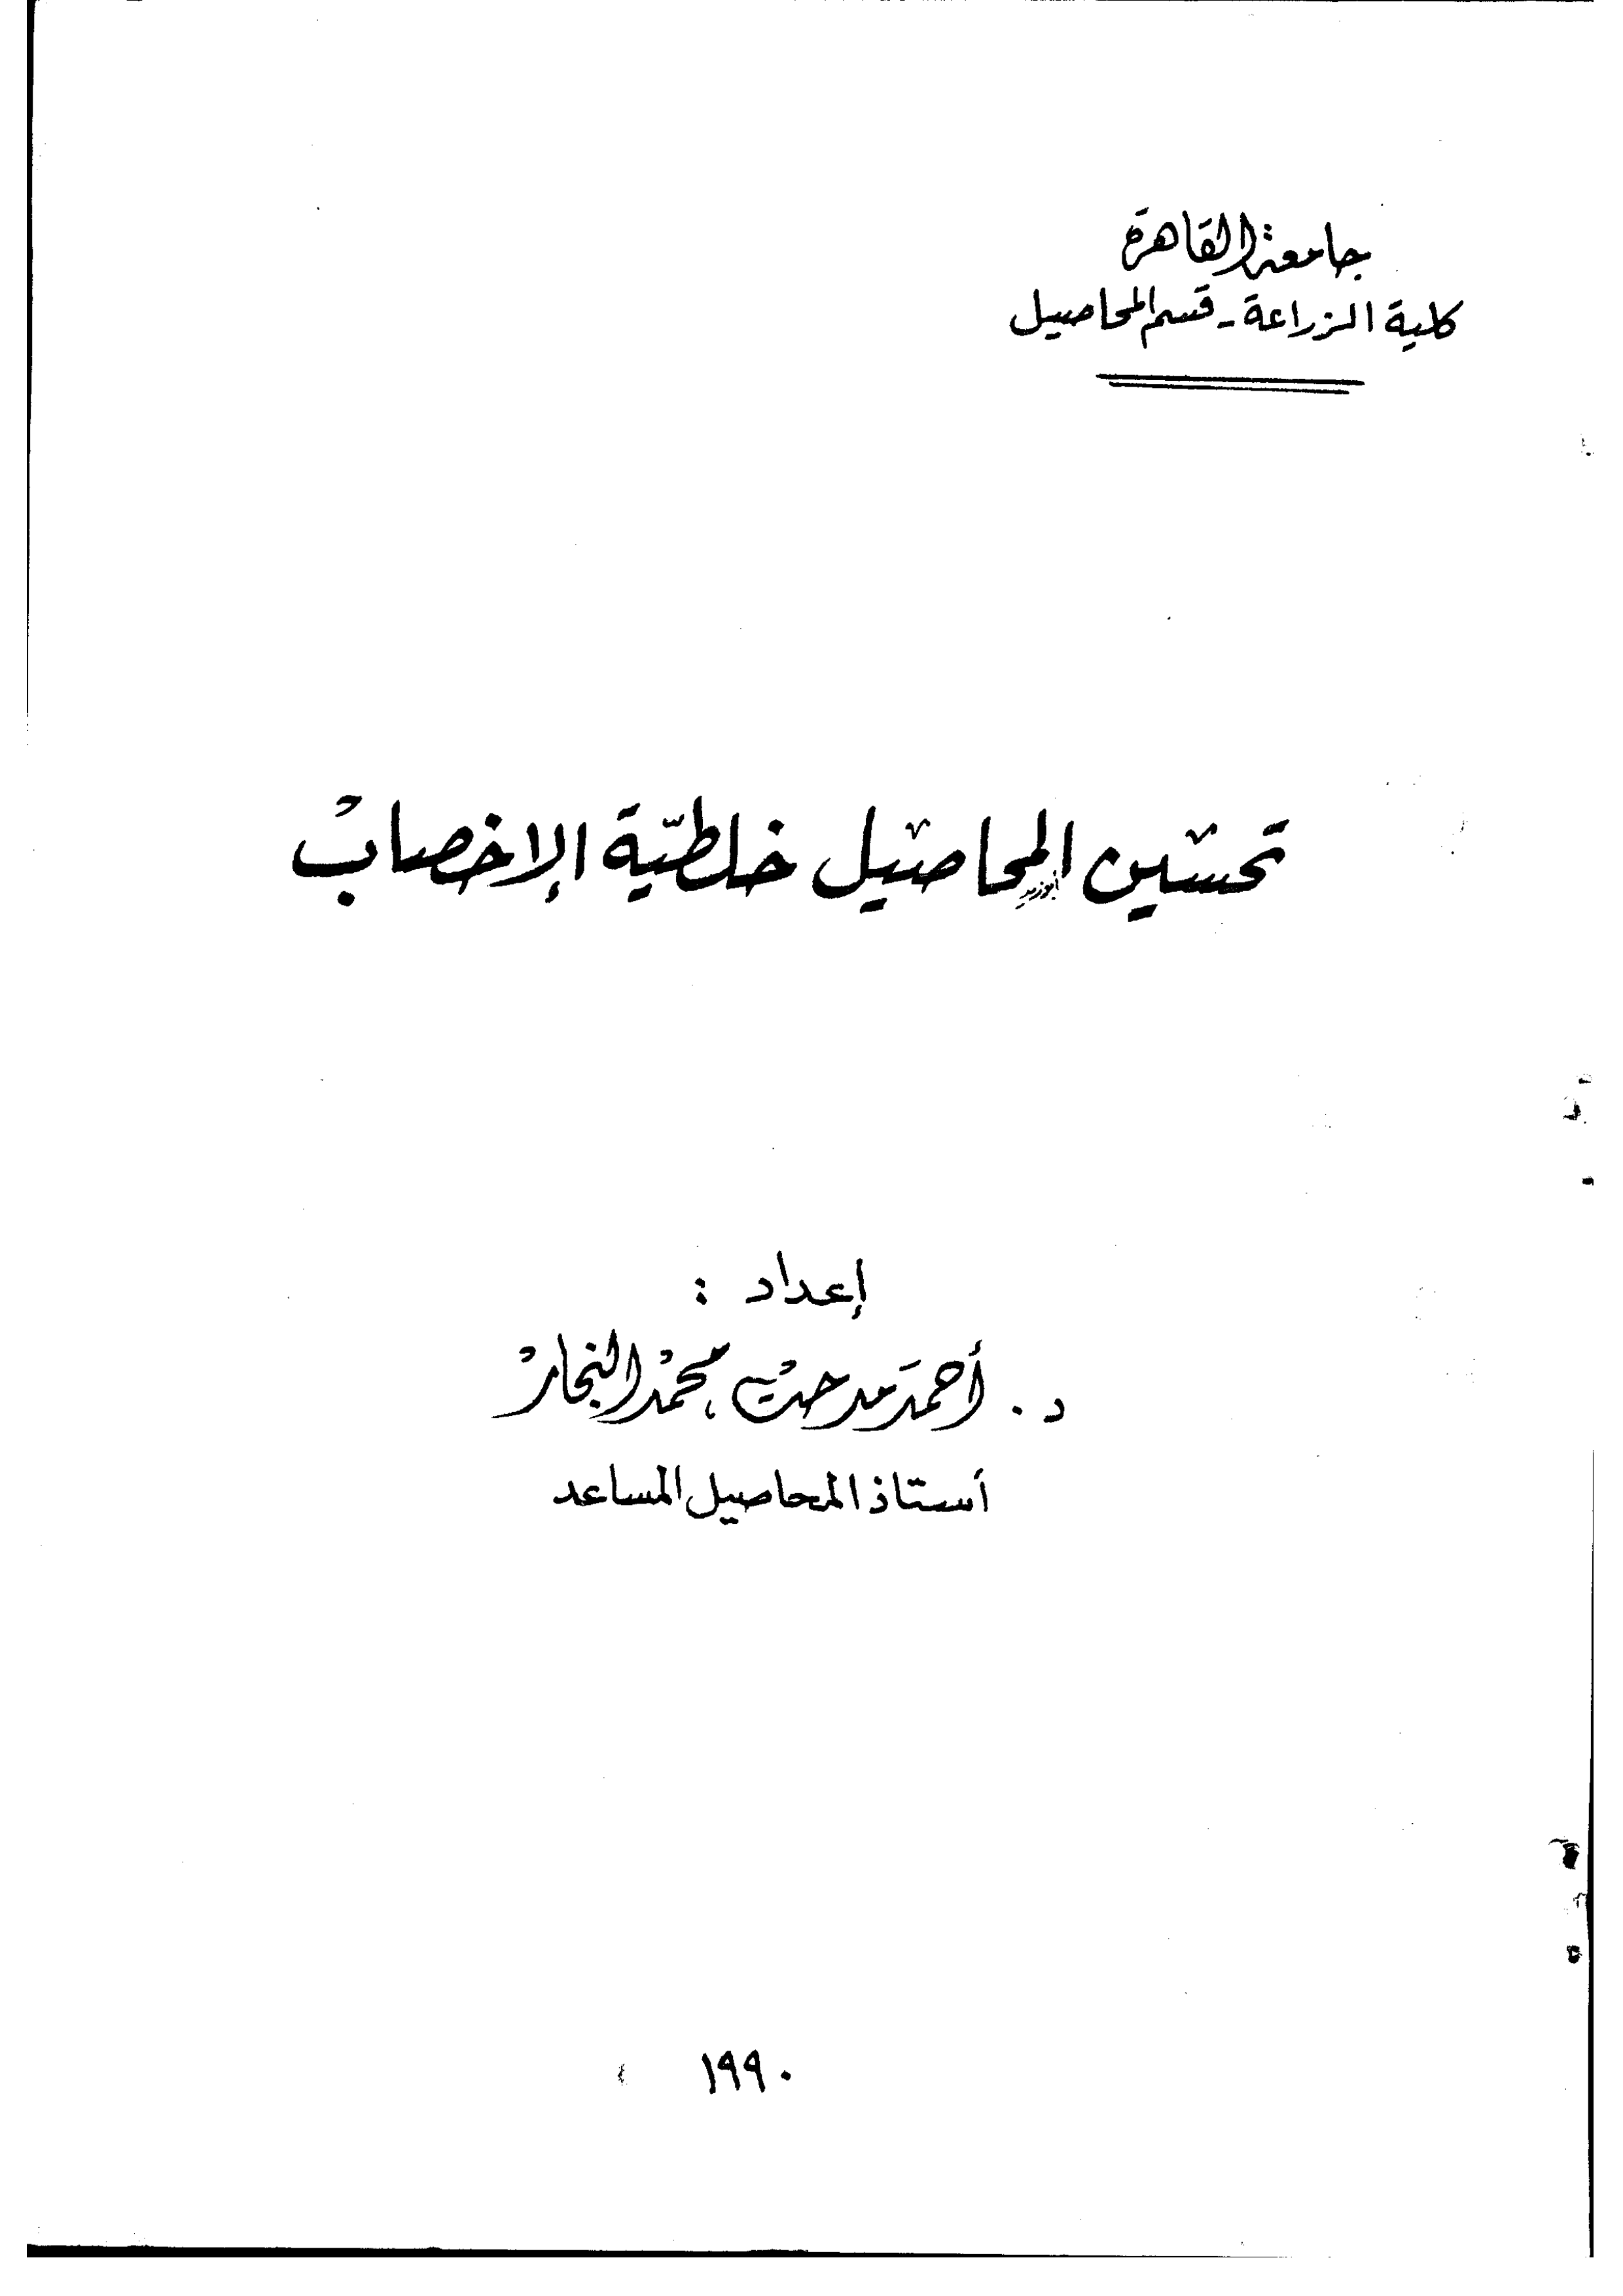 جامعة القاهرة
كلية الزراعة - قسم المحاصيل
تحسين المحاصيل خلطية الإخصاب
إعداد :
د. أحمد مدحت محمد النجار
أستاذ المحاصيل المساعد
١٩٩٠